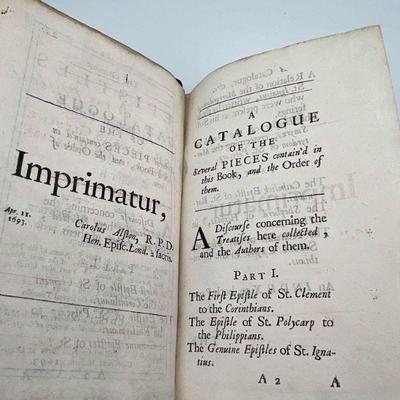 Imprimatur,
Apr. 11.
1693.
Carolus Alston, R. P. D.
Hen. Episc. Lond. a sacris.
A
CATALOGUE
OF THE
Several PIECES contain'd in
this Book, and the Order of
them.
A Discourse concerning the
Treatises here collected,
and the Authors of them.
PART I.
The First Epistle of St. Clement
to the Corinthians.
The Epistle of St. Polycarp to
the Philippians.
The Genuine Epistles of St. Igna-
tius.
A 2 A